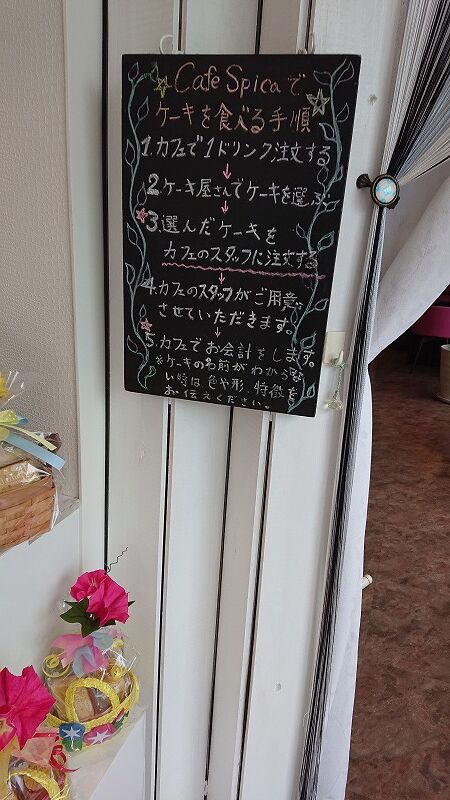 Cafe Spicaで
ケーキを食べる手順
1.カフェで1ドリンク注文する
↓
2.ケーキ屋さんでケーキを選ぶ
↓
3.選んだケーキを
カフェのスタッフに注文する
↓
4.カフェのスタッフがご用意
させていただきます。
↓
5.カフェでお会計をします。
※ケーキの名前がわからな
い時は色や形、特徴を
お伝えください。